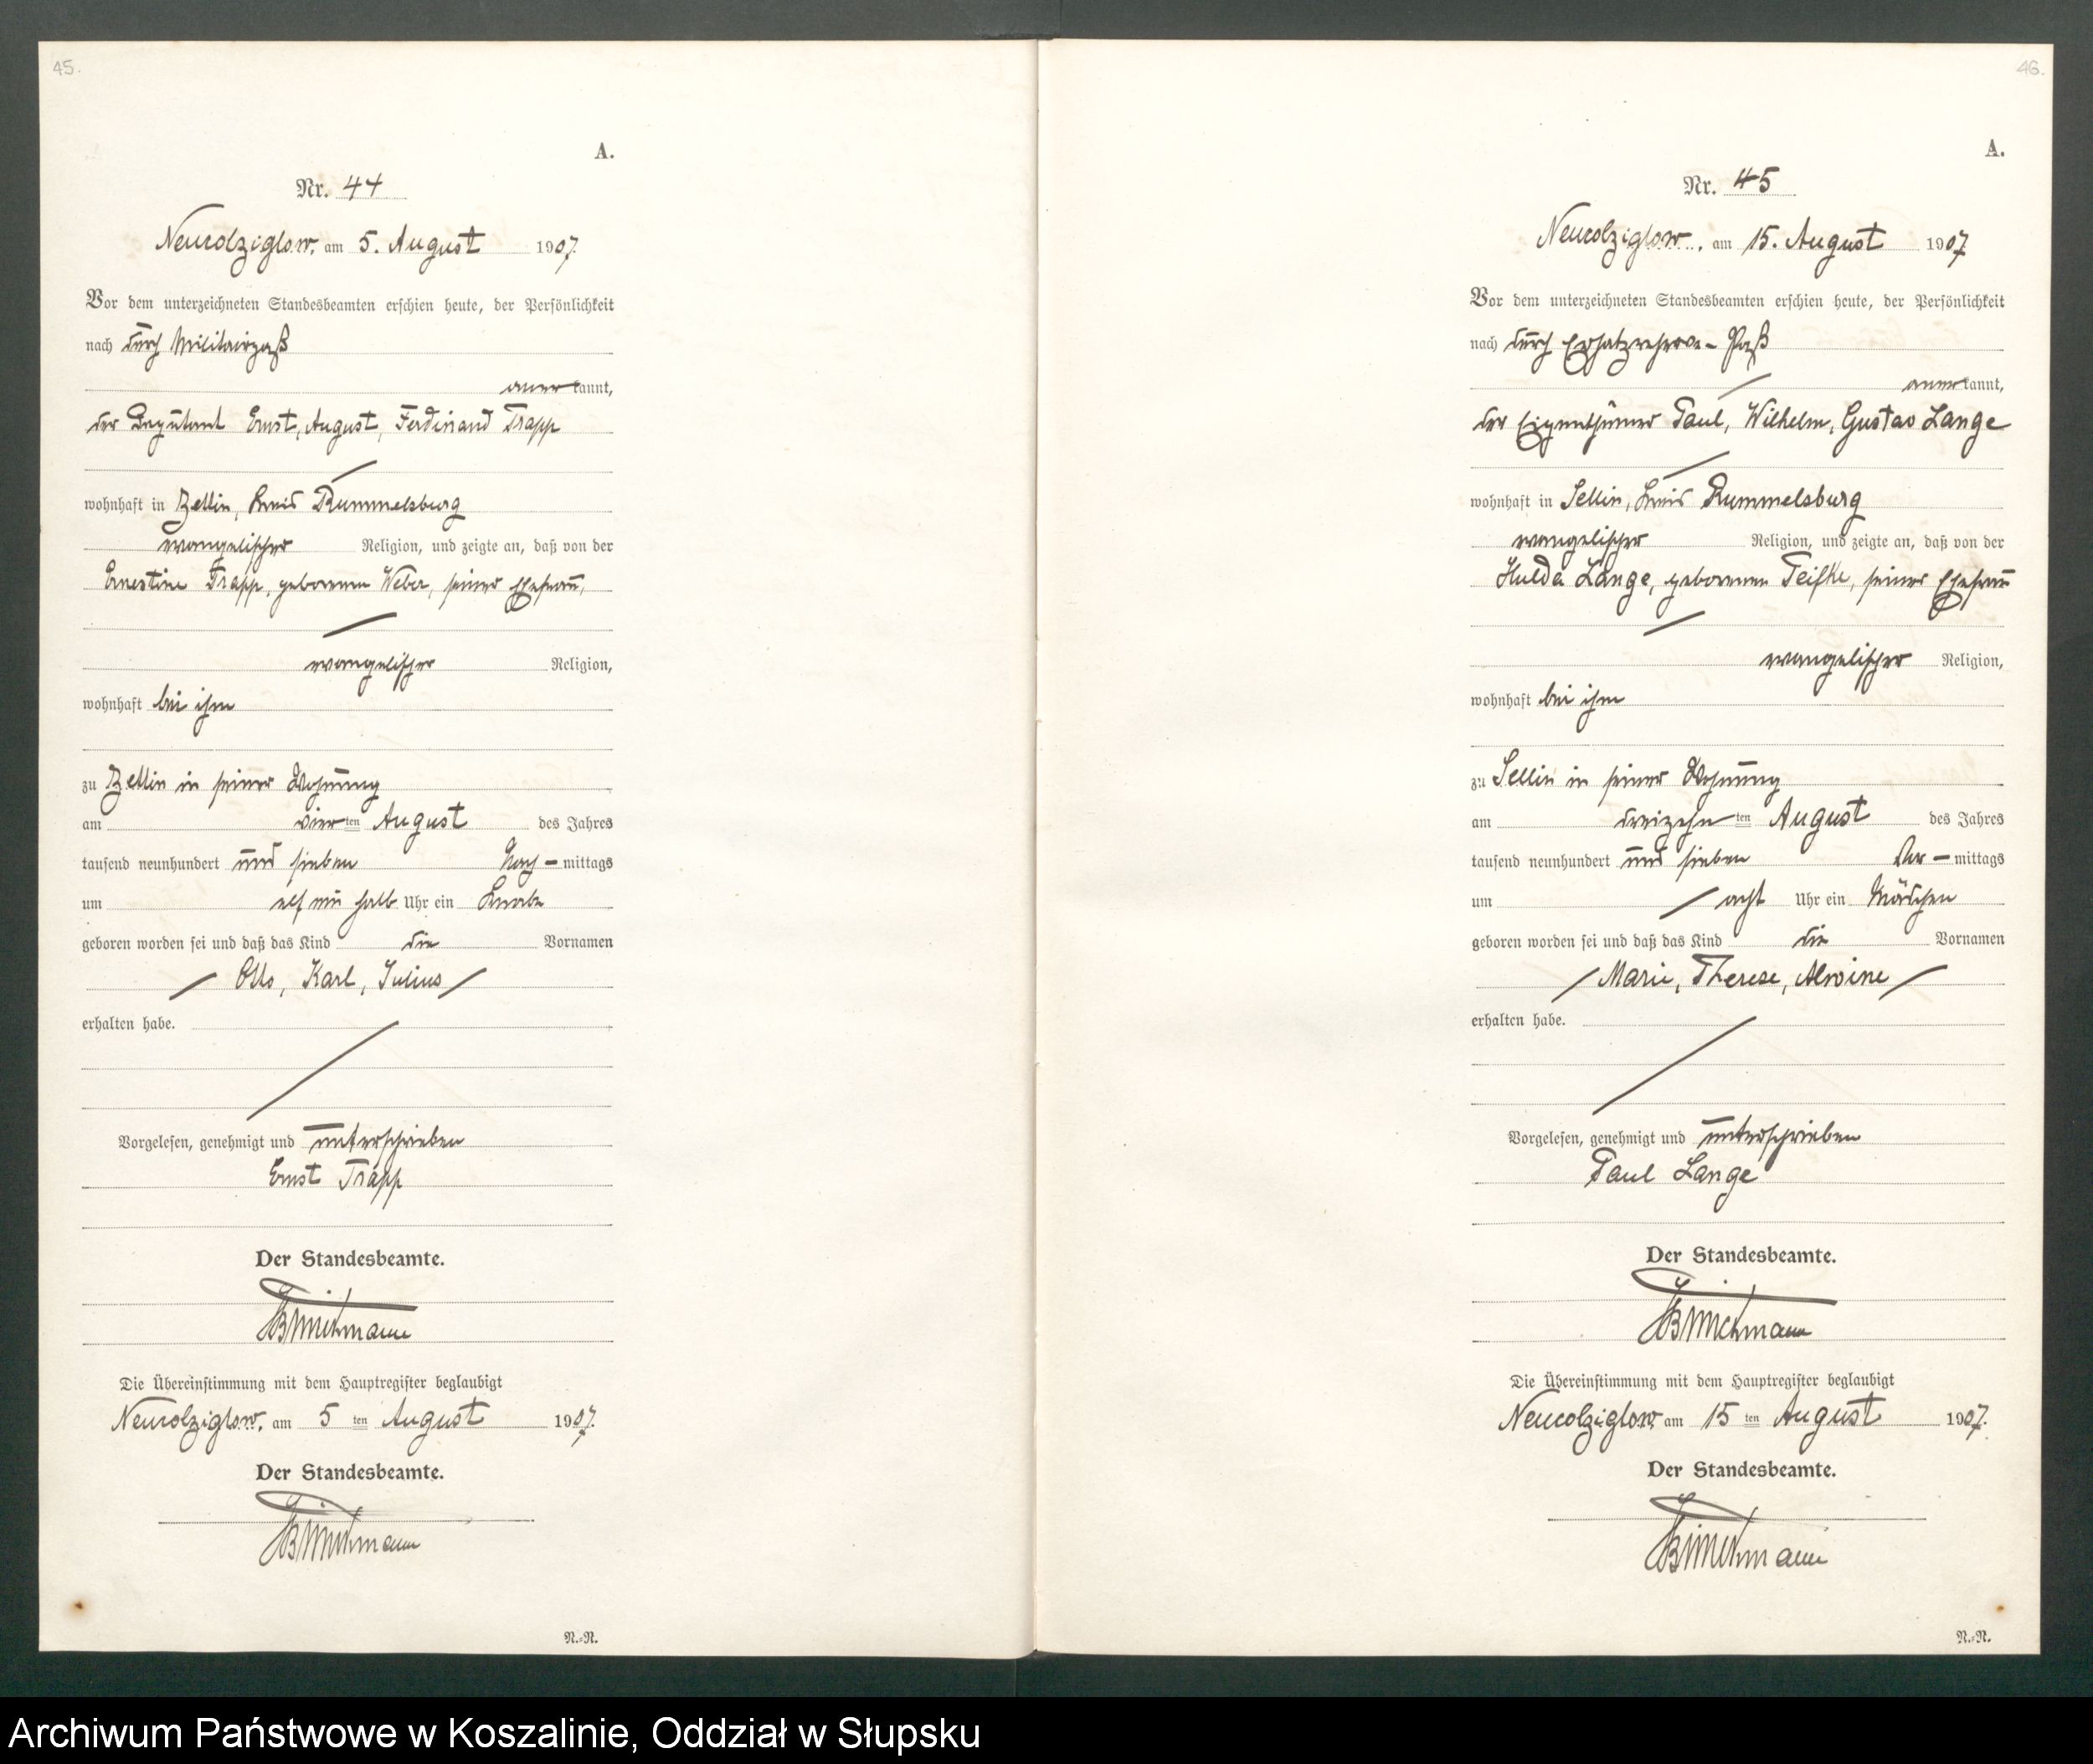 45.
A.
Nr. 44
Neukolziglow, am 5. August 1907.
Vor dem unterzeichneten Standesbeamten erschien heute, der Persönlichkeit
nach durch Militairpaß
anerkannt,
der Deputant Ernst, August, Ferdinand Trapp
wohnhaft in Zettin, Kreis Rummelsburg
evangelischer Religion, und zeigte an, daß von der
Ernestine Trapp, geborenen Weber, seiner Ehefrau,
evangelischer Religion,
wohnhaft bei ihm
zu Zettin in seiner Wohnung
am vierten August des Jahres
tausend neunhundert und sieben Nach-mittags
um elf ein halb Uhr ein Knabe
geboren worden sei und daß das Kind die Vornamen
Otto, Karl, Julius
erhalten habe.
Vorgelesen, genehmigt und unterschrieben
Ernst Trapp
Der Standesbeamte.
Die Übereinstimmung mit dem Hauptregister beglaubigt
Neukolziglow, am 5ten August 1907.
Der Standesbeamte.
N.-R.
46.
A.
Nr. 45
Neukolziglow, am 15. August 1907
Vor dem unterzeichneten Standesbeamten erschien heute, der Persönlichkeit
nach durch Ersatzreserve-Paß
anerkannt,
der Eigenthümer Paul, Wilhelm, Gustav Lange
wohnhaft in Sellin, Kreis Rummelsburg
evangelischer Religion, und zeigte an, daß von der
Hulda Lange, geborenen Teifke, seiner Ehefrau
evangelischer Religion,
wohnhaft bei ihm
zu Sellin in seiner Wohnung
am dreizehnten August des Jahres
tausend neunhundert und sieben Vor-mittags
um acht Uhr ein Mädchen
geboren worden sei und daß das Kind die Vornamen
Marie, Therese, Alwine
erhalten habe.
Vorgelesen, genehmigt und unterschrieben
Paul Lange
Der Standesbeamte.
Die Übereinstimmung mit dem Hauptregister beglaubigt
Neukolziglow am 15ten August 1907.
Der Standesbeamte.
N.-R.
Archiwum Państwowe w Koszalinie, Oddział w Słupsku